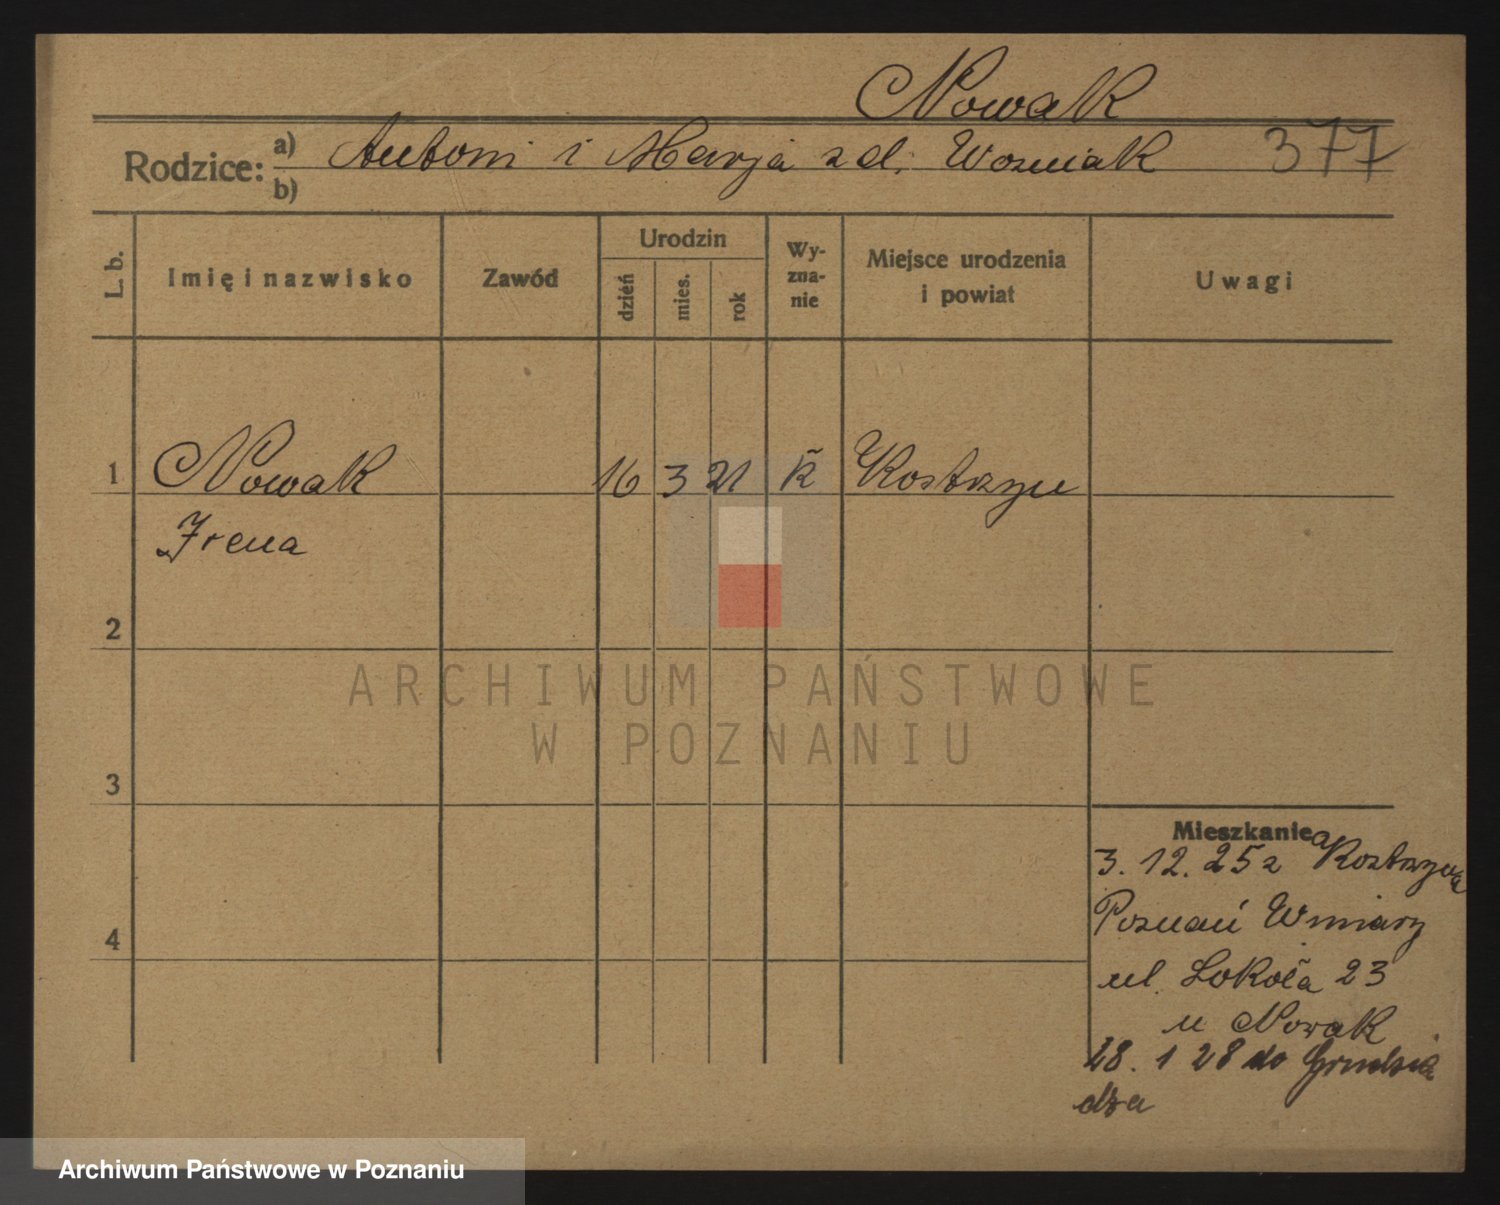 Nowak
Rodzice: a) Antoni i Marja z d. Wozniak 377
b)
L. b. Imię i nazwisko Zawód Urodzin dzień mies. rok Wy-zna-nie Miejsce urodzenia i powiat Uwagi
1 Nowak 16 3 21 k Kostrzyn
Irena
2
3
4
Mieszkanie
3. 12. 25 z Kostrzyna
Poznań Winiary
ul. Sokoła 23
u Nowak
28. 1 28 do Grudzią
dza
ARCHIWUM PAŃSTWOWE
W POZNANIU
Archiwum Państwowe w Poznaniu